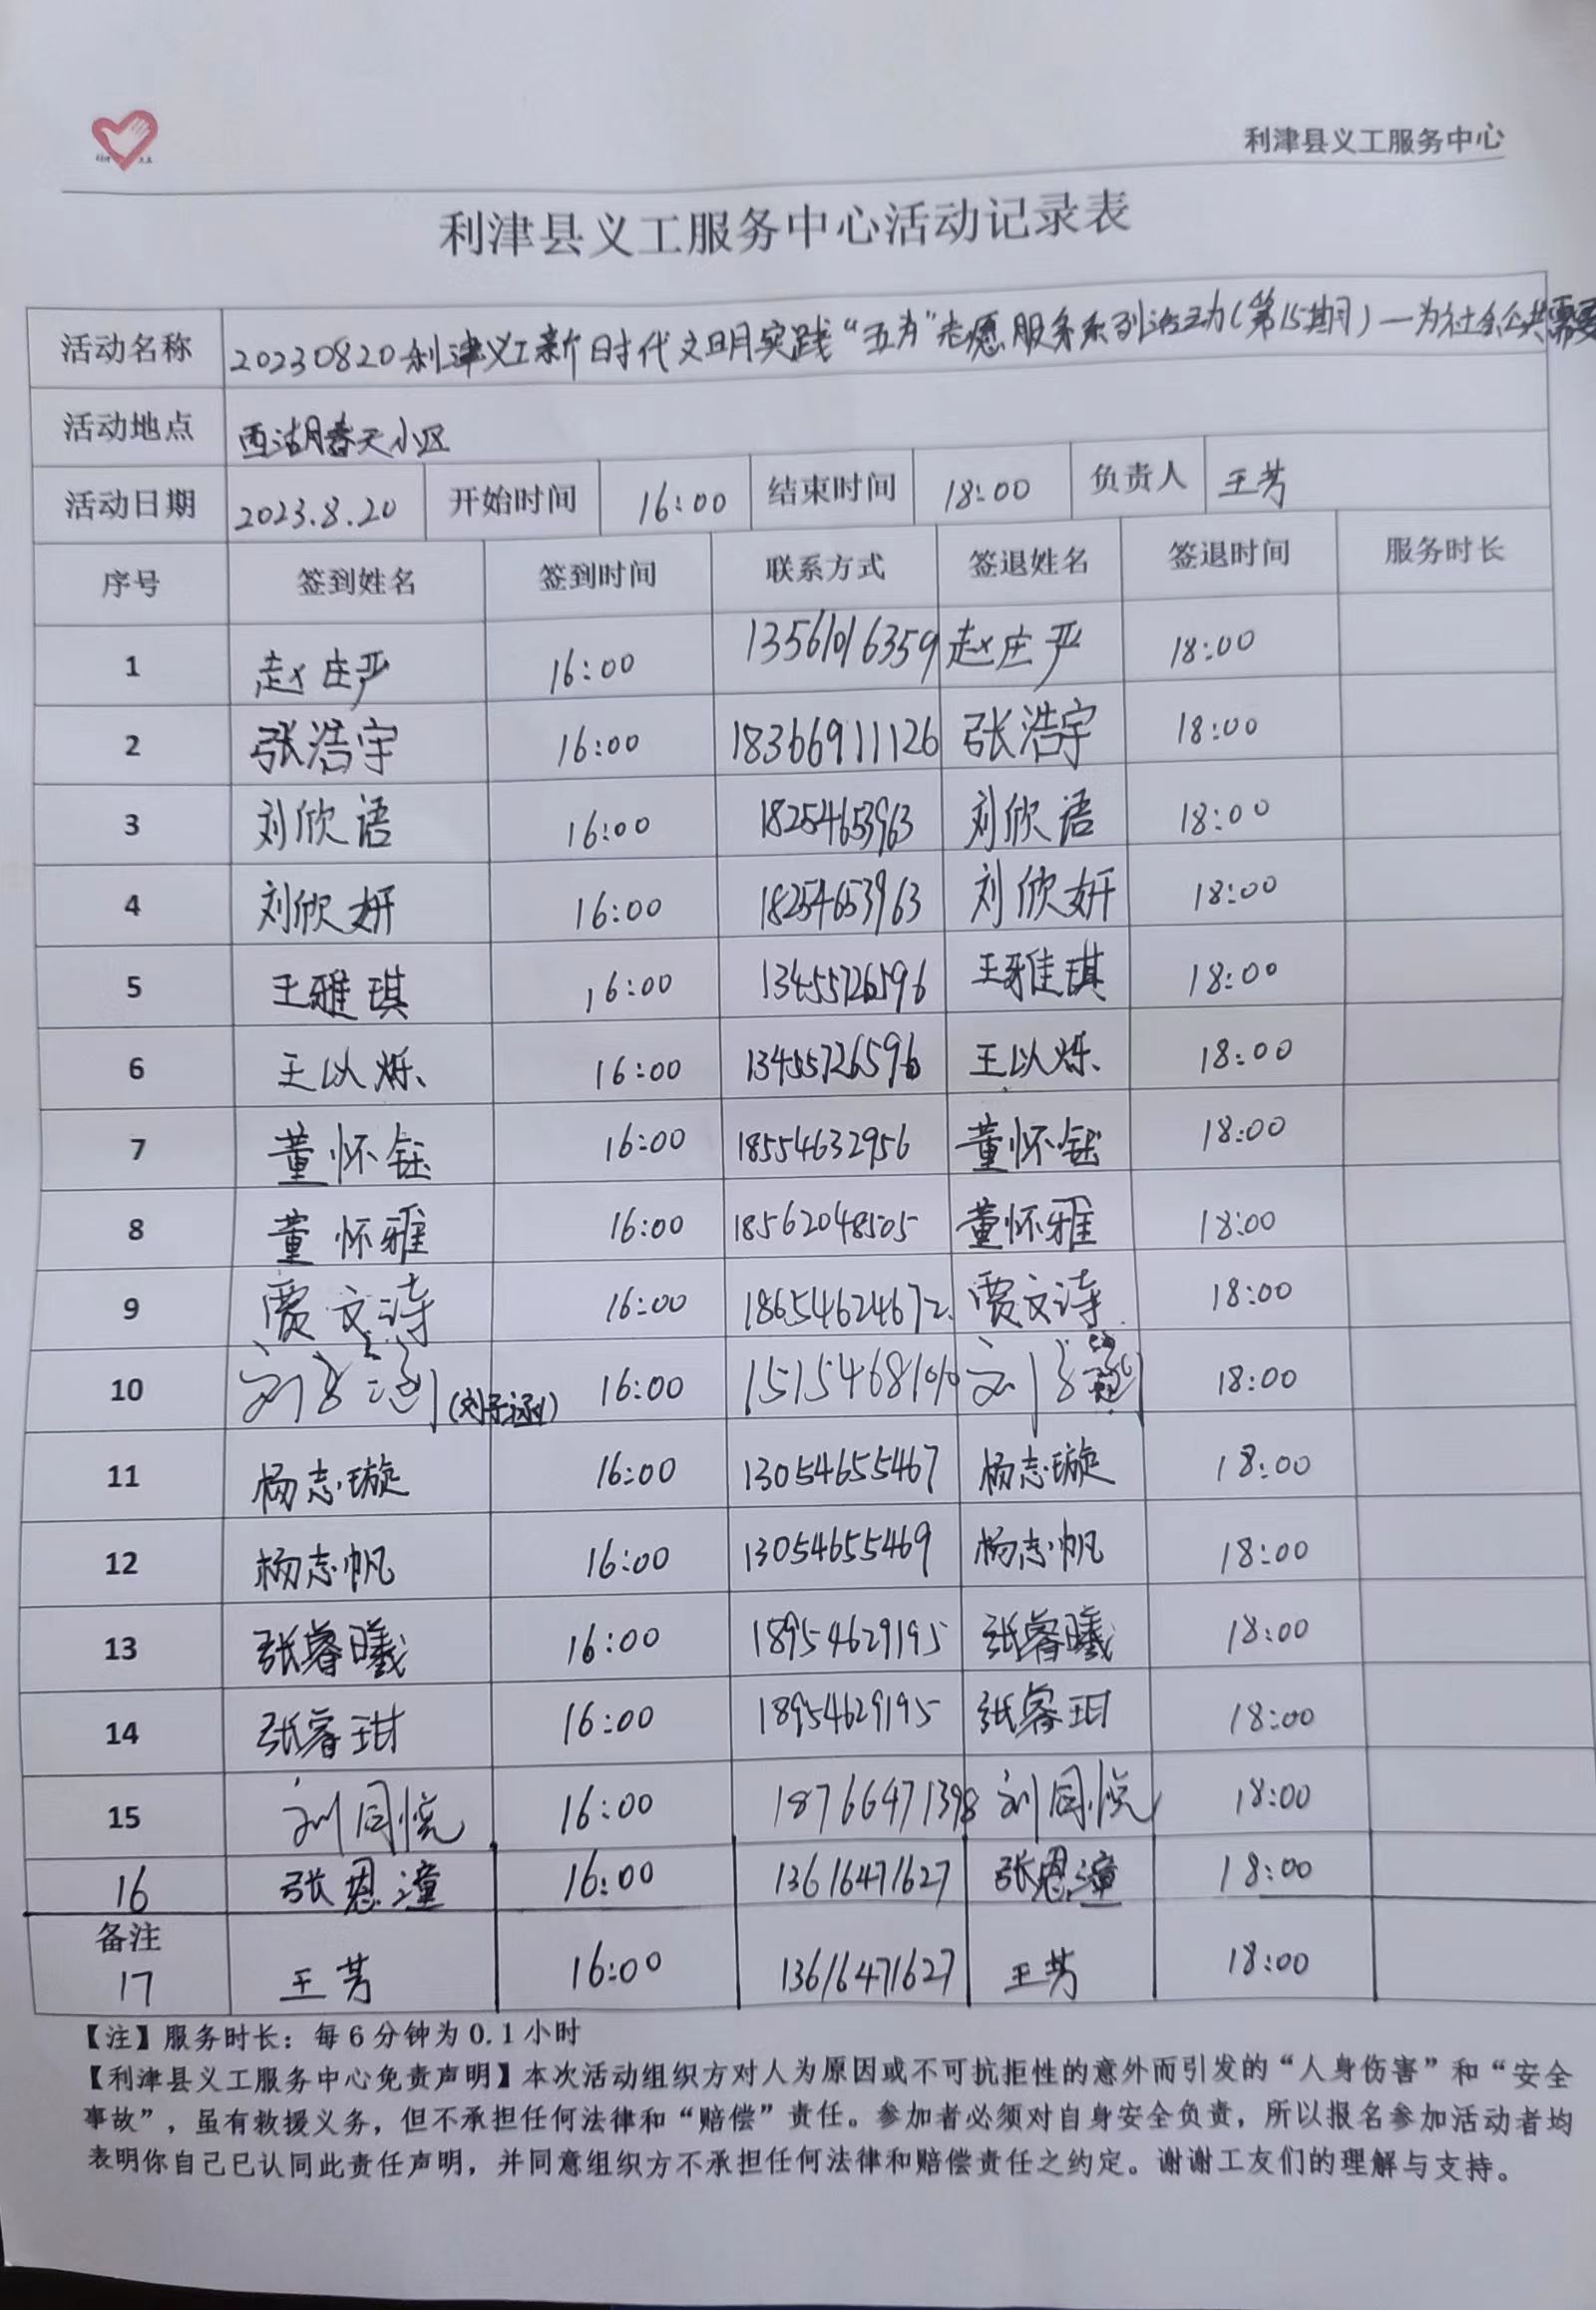 利津县义工服务中心
利津县义工服务中心活动记录表
活动名称 20230820利津义工新时代文明实践“五为”志愿服务系列活动(第15期)—为社会公共需要
活动地点 西湖春天小区
活动日期 2023.8.20 开始时间 16:00 结束时间 18:00 负责人 王芳
序号 签到姓名 签到时间 联系方式 签退姓名 签退时间 服务时长
1 赵庄严 16:00 13561016359 赵庄严 18:00
2 张浩宇 16:00 18366911126 张浩宇 18:00
3 刘欣语 16:00 18254653963 刘欣语 18:00
4 刘欣妍 16:00 18254653963 刘欣妍 18:00
5 王雅琪 16:00 13455726596 王雅琪 18:00
6 王以烁 16:00 13455726596 王以烁 18:00
7 董怀钰 16:00 18554632956 董怀钰 18:00
8 董怀雅 16:00 18562048505 董怀雅 18:00
9 贾文涛 16:00 18654624672 贾文涛 18:00
10 刘子涵 (刘子涵) 16:00 刘子涵 18:00
11 杨志璇 16:00 13054655467 杨志璇 18:00
12 杨志帆 16:00 13054655469 杨志帆 18:00
13 张睿曦 16:00 18954629195 张睿曦 18:00
14 张睿玥 16:00 18954629195 张睿玥 18:00
15 刘同悦 16:00 18766471398 刘同悦 18:00
16 张恩潼 16:00 13616471627 张恩潼 18:00
备注
17 王芳 16:00 13616471627 王芳 18:00
【注】服务时长：每6分钟为0.1小时
【利津县义工服务中心免责声明】本次活动组织方对人为原因或不可抗拒性的意外而引发的“人身伤害”和“安全
事故”，虽有救援义务，但不承担任何法律和“赔偿”责任。参加者必须对自身安全负责，所以报名参加活动者均
表明你自己已认同此责任声明，并同意组织方不承担任何法律和赔偿责任之约定。谢谢工友们的理解与支持。